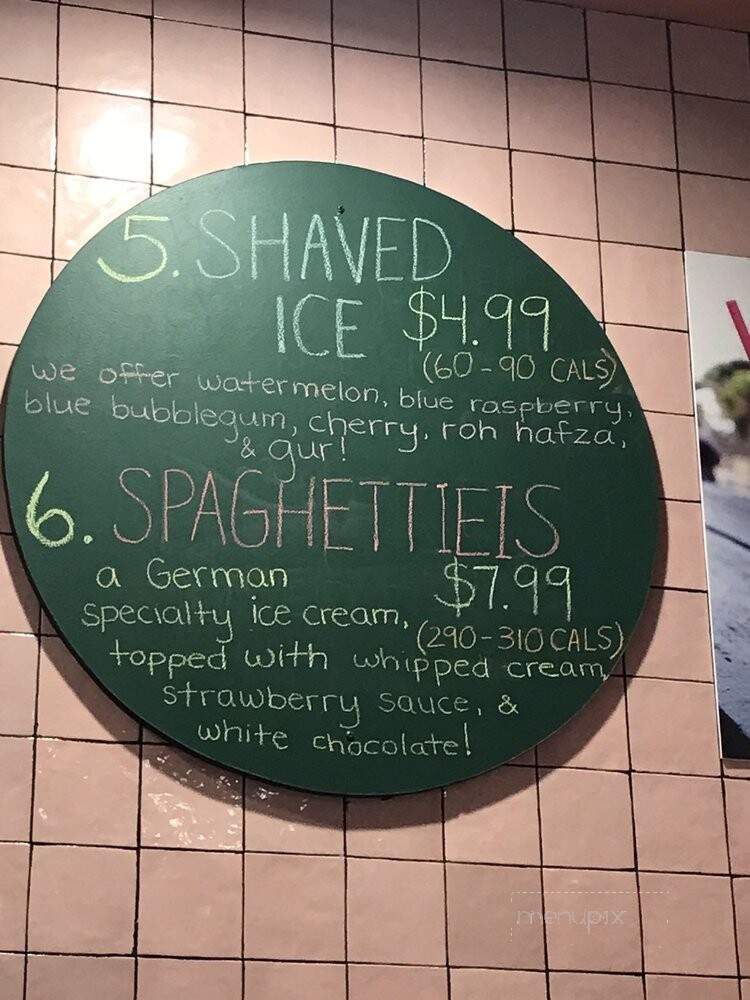 5. SHAVED
ICE $4.99
(60-90 CALS)
we offer watermelon, blue raspberry,
blue bubblegum, cherry, roh hafza,
& gur!
6. SPAGHETTIEIS
a German $7.99
specialty ice cream, (290-310 CALS)
topped with whipped cream,
strawberry sauce, &
white chocolate!
menupix